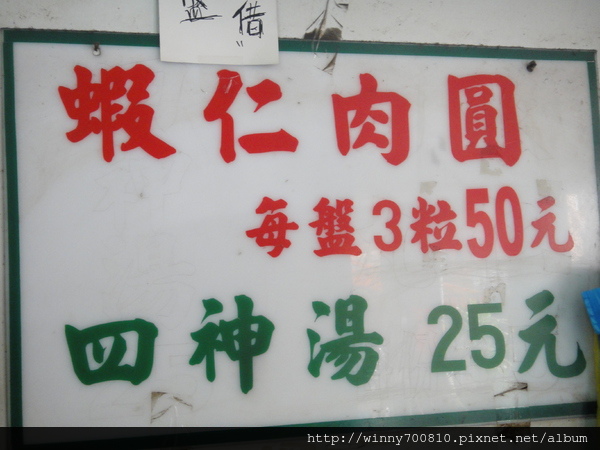 借"
蝦仁肉圓
每盤3粒50元
四神湯 25元
http://winny700810.pixnet.net/album